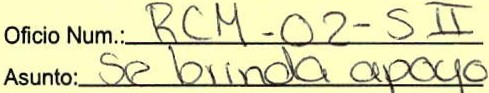 Oficio Num.: RCM-02-SII
Asunto: Se brinda apoyo